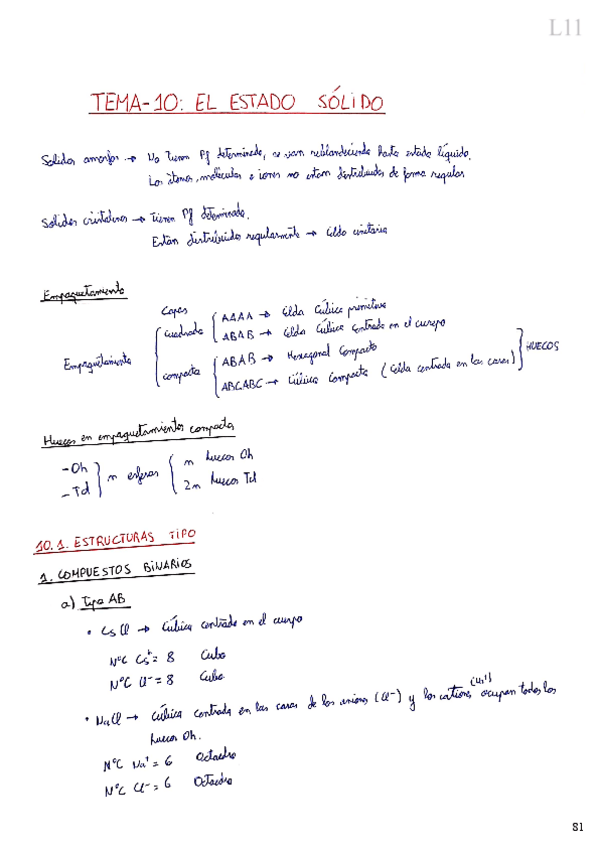 L11
TEMA-10: EL ESTADO SÓLIDO
Solidos amorfos → No tienen Pf determinado, se van reblandeciendo hasta estado líquido.
Los átomos, moléculas o iones no estan distribuidos de forma regular
Solidos cristalinos → Tienen Pf determinado.
Estan distribuidos regularmente → Celda unitaria
Empaquetamiento
Capas
Empaquetamiento
cuadrada
AAAA → Celda Cúbica primitiva
ABAB → Celda Cúbica centrada en el cuerpo
compacta
ABAB → Hexagonal Compacto
ABCABC → Cúbica Compacta (Celda centrada en las caras)
HUECOS
Huecos en empaquetamientos compactos
- Oh
- Td
n esferas
n huecos Oh
2n huecos Td
10.1. ESTRUCTURAS TIPO
1. COMPUESTOS BINARIOS
a) Tipo AB
• CsCl → Cúbica centrada en el cuerpo
NºC Cs⁺ = 8 Cubo
NºC Cl⁻ = 8 Cubo
• NaCl → Cúbica centrada en las caras de los aniones (Cl⁻) y los cationes (Na⁺) ocupan todos los
huecos Oh.
NºC Na⁺ = 6 Octaedro
NºC Cl⁻ = 6 Octaedro
81